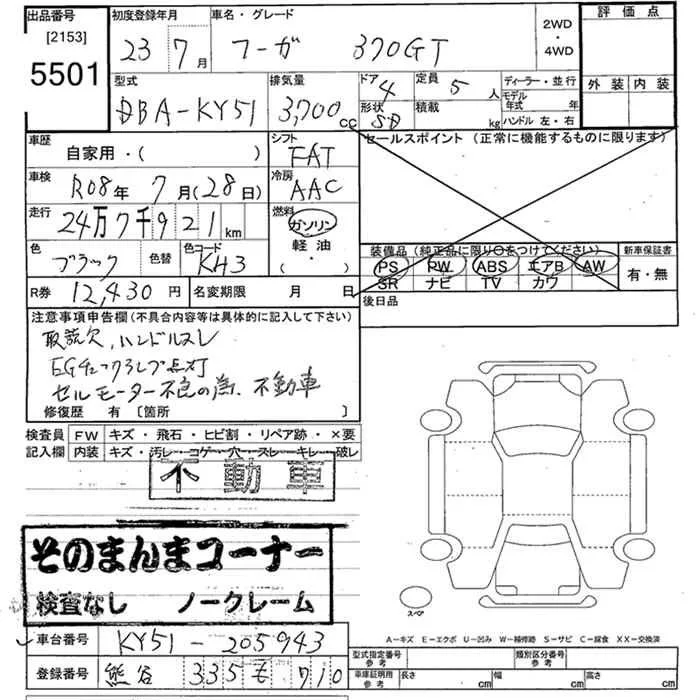 出品番号
[2153]
5501
初度登録年月
23年 7月
車名・グレード
フーガ 370GT
2WD
・
4WD
評価点
外装 内装
型式
DBA-KY51
排気量
3,700cc
ドア 4
形状 SD
定員 5人
積載 kg
ディーラー・並行
モデル年式 年
ハンドル 左・右
車歴
自家用・( )
シフト
FAT
セールスポイント (正常に機能するものに限ります)
車検
R08年 7月(28日)
冷房
AAC
走行
24万7千921km
燃料
ガソリン
軽油
( ・ )
色
ブラック
色替
色コード
KH3
装備品 (純正品に限り○をつけてください)
PS PW ABS エアB AW
SR ナビ TV カワ
新車保証書
有・無
R券 12,430円
名変期限 月 日
後日品
注意事項申告欄(不具合内容等は具体的に記入して下さい)
取説欠、ハンドルスレ
EGチェックランプ点灯
セルモーター不良の為、不動車
修復歴 有 [箇所 ]
検査員 FW キズ・飛石・ヒビ割・リペア跡・×要
記入欄 内装 キズ・汚レ・コゲ・穴・スレ・キレ・破レ
不動車
そのまんまコーナー
検査なし ノークレーム
スペア
A-キズ E-エクボ U-凹み W-補修跡 S-サビ C-腐食 XX-交換済
車台番号 KY51-205943
登録番号 熊谷 335 も 710
型式指定番号 参考
類別区分番号 参考
車庫証明用 参考 長さ cm 幅 cm 高さ cm